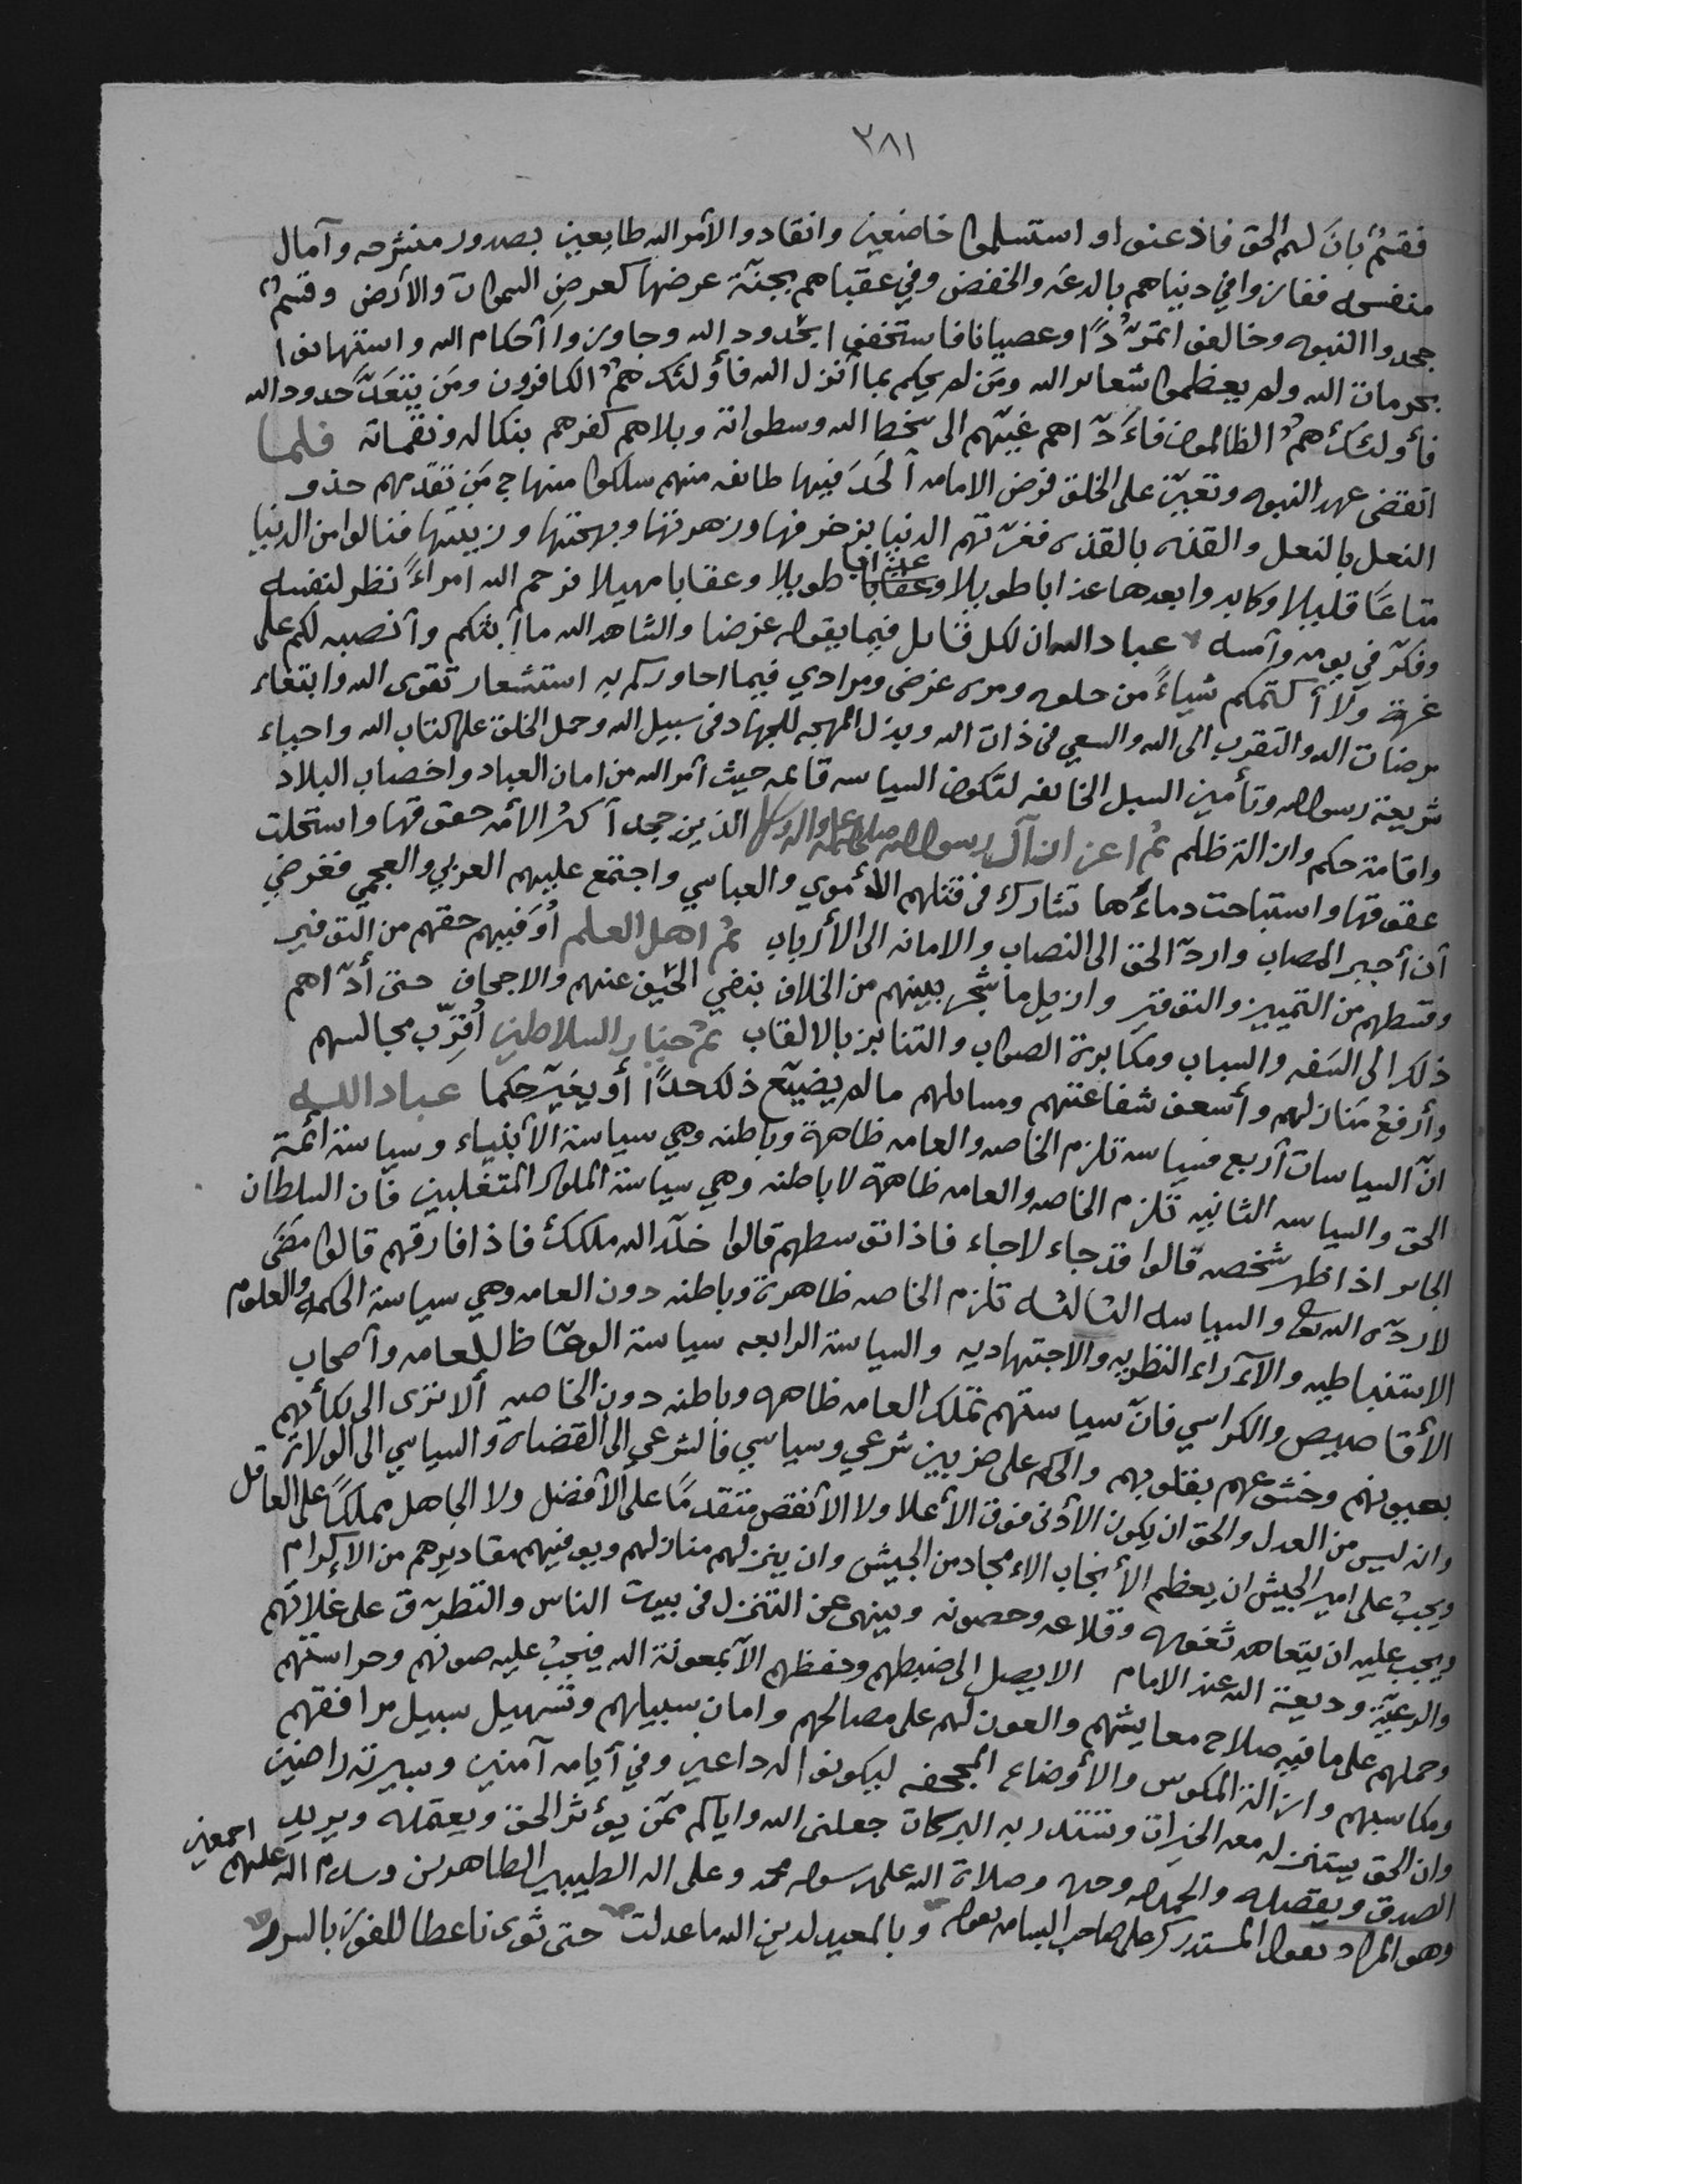 ٣٨١
فقسمٌ بانَ لهم الحق فاذعنوا و استسلموا خاضعين وانقادوا لأمر الله طايعين بصدور منشرحه وآمال
منفسحه ففازوا في دنياهم بالدعه والخفض وفي عقباهم بجنّة عرضها كعرض السموات والأرض وقسمٌ
جحدوا النبوه وخالفوا تمرّدًا وعصيانا فاستخفوا بحدود الله وجاوزوا أحكام الله واستهانوا
بحرمات الله ولم يعظموا شعائر الله ومَن لم يحكم بما أنزل الله فأولئك همُ الكافرون ومَن يتعدَّ حدود الله
فأولئك همُ الظالمون فأدّاهم غيّهم الى سخط الله وسطواته وبلاهم كفرهم بنكاله ونقماته فلما
انقضى عهد النبوه وتعيّن على الخلق فرض الامامه ألحَدَ فيها طائفه منهم سلكوا منهاج مَن تقدّمهم حذو
النعل بالنعل والقذه بالقذه فغرّتهم الدنيا بزخرفها وزهرتها وبهجتها وزينتها فنالوا من الدنيا
متاعًا قليلا وكابدوا بعدها عذابا طويلا وعقابا طويلا وعقابا مهيلا فرحم الله امراءً نظر لنفسه
وفكّر في يومه وأمسه عباد الله ان لكل قائل فيما يقوله غرضا والشاهد الله ما أبثكم وأنصبه لكم على
غرة ولا أكتمكم شياءً من حلوه ومره غرضى ومرادي فيما احاوركم به استشعار تقوى الله وابتغاء
مرضات الله والتقرب الى الله والسعي في ذات الله وبذل المهجه للجهاد في سبيل الله وحمل الخلق على كتاب الله واحياء
شريعة رسول الله وتأمين السبل الخائفه لتكون السياسه قائمه حيث أمر الله من امان العباد واخصاب البلاد
واقامة حكم وازالة ظلم ثم اعزاز آل رسول الله صلى الله عليه واله وسلم الذين جحد أكثر الأمه حقوقها واستحلت
عقوقها واستباحت دماءَها تشارك في قتلهم الأموي والعباسي واجتمع عليهم العربي والعجمي فغرضي
أن أجبر المصاب واردّ الحق الى النصاب والامانه الى الأرباب ثم اهل العلم أوَفيهم حقهم من التوفير
وقسطهم من التمييز والتوقير وازيل ما شجر بينهم من الخلاف بنفي الحيف عنهم والاجحاف حتى أدّاهم
ذلك الى السَفه والسباب ومكابرة الصواب والتنابز بالالقاب ثم خيار السلاطين أقرّب مجالسهم
وأرفعُ مَنازلهم وأسعف شفاعتهم ومسائلهم مالم يضيّع ذلك حدًّا أو يغيّر حكما عباد الله
انّ السياسات أربع فسياسه تلزم الخاصه والعامه ظاهرة وباطنه وهي سياسة الأنبياء وسياسة ائمة
الحق والسياسه الثانيه تلزم الخاصه والعامه ظاهرة لا باطنه وهي سياسة الملوك المتغلبين فان السلطان
الجائر اذا ظهر شخصه قالوا قد جاء لاجاء فاذا توسطهم قالوا خلّد الله ملكك فاذا فارقهم قالوا مضَى
لا ردّه الله تعالى والسياسه الثالثه تلزم الخاصه ظاهرة وباطنه دون العامه وهي سياسة الحكمه والعلوم
الاستنباطيه والآراء النظريه والاجتهاديه والسياسة الرابعه سياسة الوعّاظ للعامه وأصحاب
الأقاصيص والكراسي فانّ سياستهم تملك العامه ظاهره وباطنه دون الخاصه ألا ترى الى بكائهم
بعيونهم وخشوعهم بقلوبهم والحكم على ضربين شرعي وسياسي فالشرعي الى القضاة والسياسي الى الولاة
وانه ليس من العدل والحق ان يكون الأدنى فوق الأعلا ولا الأنقص متقدمًا على الأفضل ولا الجاهل مملكًا على العاقل
ويجبُ على امير الجيش ان يعظم الأنجاب الامجاد من الجيش وان ينزلهم منازلهم ويوفيهم مقاديرهم من الإكرام
ويجب عليه ان يتعاهد ثغوره وقلاعه وحصونه وينهى عن التنزل في بيوت الناس والتطرّق على غلاّتهم
والرعيّة وديعة الله عند الامام لا يصل الى ضبطهم وحفظهم الاّ بمعونة الله فيجبُ عليه صونهم وحراستهم
وحملهم على ما فيه صلاح معايشهم والعون لهم على مصالحهم وامان سبيلهم وتسهيل سبيل مرافقهم
ومكاسبهم وازالة المكوس والأوضاع المجحفه ليكونوا له داعين وفي أيامه آمنين وبسيرته راضين
وان الحق يستنزل معه الخيرات وتستدر به البركات جعلنى الله واياكم ممّن يؤثر الحق ويعتمده ويريد
الصدق ويقصده والحمد لله وحده وصلاة الله على رسوله محمد وعلى اله الطيبين الطاهرين وسلام الله عليهم اجمعين
وهو المراد بقول المستدرك على صاحب البسامه بقوله وبالمعيد لدين الله ما عدلت حتى ثوى ناعطا للفوز بالسرر